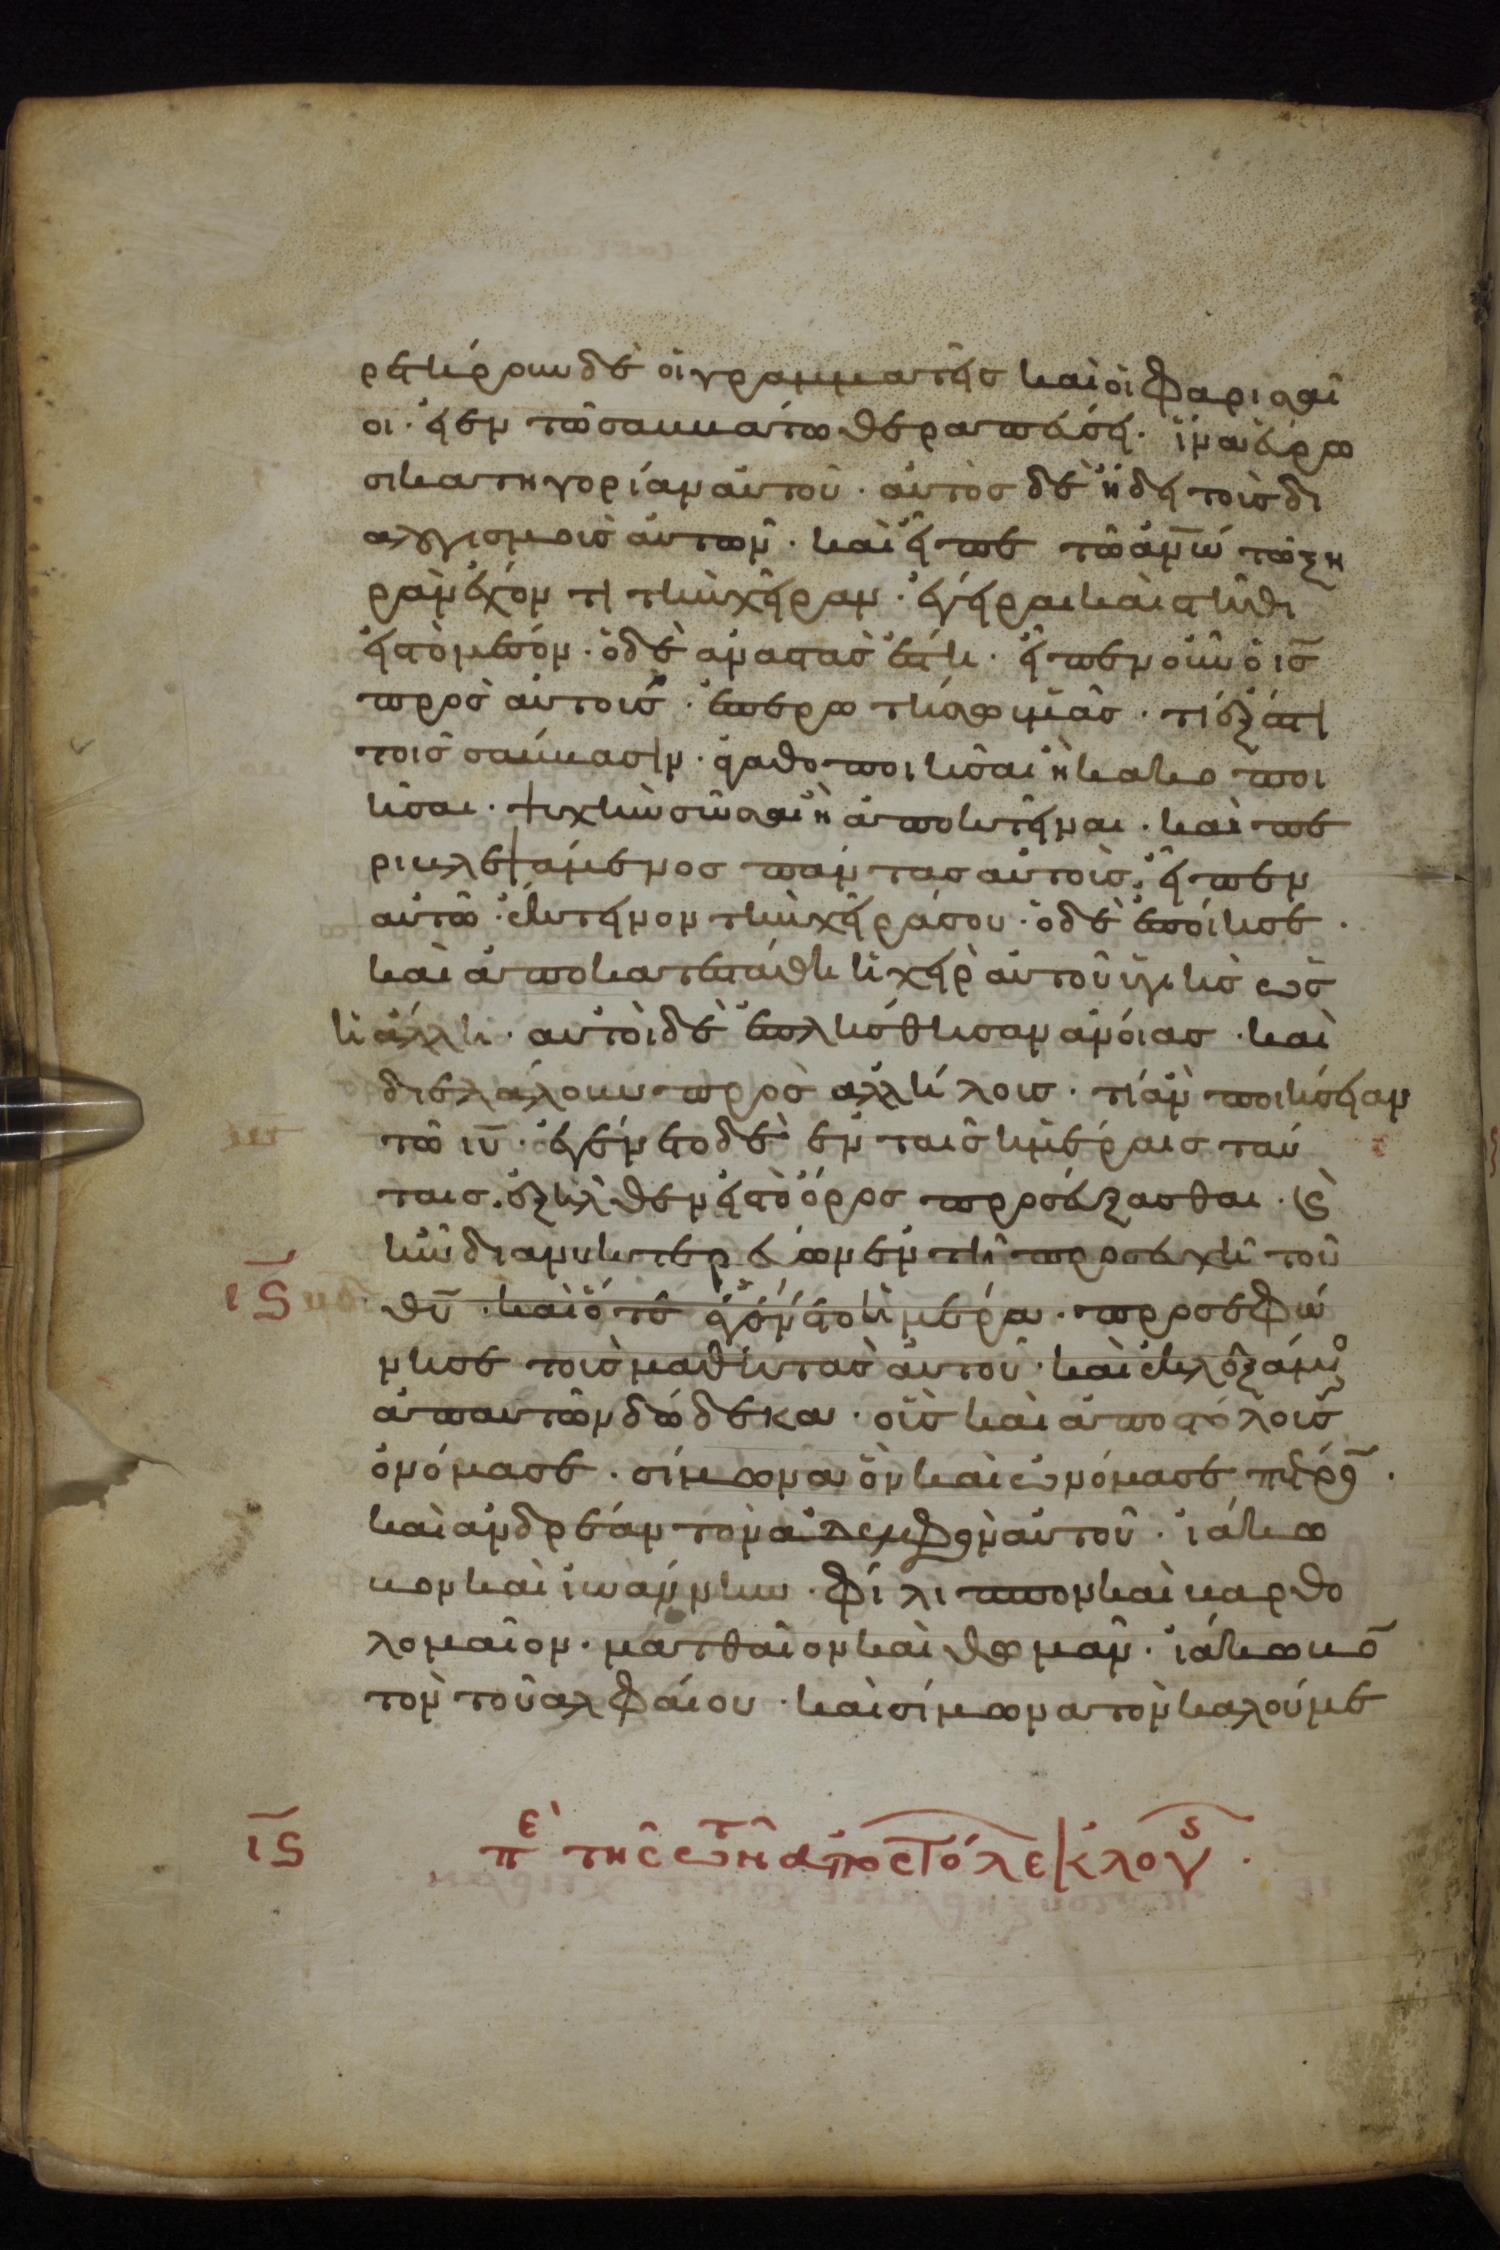 ρετήρουν δὲ οἱ γραμματεῖς καὶ οἱ Φαρισαῖ
οι· εἰ ἐν τῶ σαββάτω θεραπεύσει· ἵνα εὕρω
σι κατηγορίαν αὐτοῦ· αὐτὸς δὲ ἤδει τοὺς δι
αλογισμοὺς αὐτῶν· καὶ εἶπε τῶ ἀν̅ω τῶ ξη
ρὰν ἔχοντι τὴν χεῖραν· ἔγειραι καὶ στῆθι
εἰς τὸ μέσον· ὁ δὲ ἀναστὰς ἔστη· εἶπεν οὖν ὁ ις̅
πρὸς αὐτούς· ἐπερωτήσω ὑμᾶς· τί ἔξεστι
τοῖς σάββασιν· ἀγαθοποιῆσαι ἢ κακοποι
ῆσαι· ψυχὴν σῶσαι ἢ ἀποκτεῖναι· καὶ πε
ριβλεψάμενος πάντας αὐτοὺς· εἶπεν
αὐτῶ· ἔκτεινον τὴν χεῖρά σου· ὁ δὲ ἐποίησε·
καὶ ἀποκατεστάθη ἡ χεὶρ αὐτοῦ ὑγιὴς ὡς
ἡ ἄλλη· αὐτοὶ δὲ ἐπλήσθησαν ἀνοίας· καὶ
διελάλουν πρὸς ἀλλήλους· τί ἂν ποιήσειαν
τῶ ιυ̅· ἐγένετο δὲ ἐν ταῖς ἡμέραις ταύ
ταις· ἐξῆλθεν εἰς τὸ ὄρος προσεύξασθαι· κ(αὶ)
ἦν διανυκτερεύων ἐν τῆ προσευχῆ τοῦ
ις̅ θυ̅· καὶ ὅτε ἐγένετο ἡμέρα· προσεφώ
νησε τοὺς μαθητὰς αὐτοῦ· καὶ ἐκλεξάμενο
ἀπ αὐτῶν δώδεκα· οὓς καὶ ἀποστόλους
ὀνόμασε· σίμωνα ὃν καὶ ὠνόμασε πέτρο̅·
καὶ ἀνδρέαν τὸν ἀδελφὸν αὐτοῦ· ἰάκω
βον καὶ ἰωάννην· φίλιππον καὶ βαρθο
λομαῖον· ματθαῖον καὶ θωμᾶν· ἰάκωβο̅
τὸν τοῦ ἀλφαίου· καὶ σίμωνα τὸν καλούμε
ις̅ πε τῆς τῶν ἀποστόλ ἐκλογ·